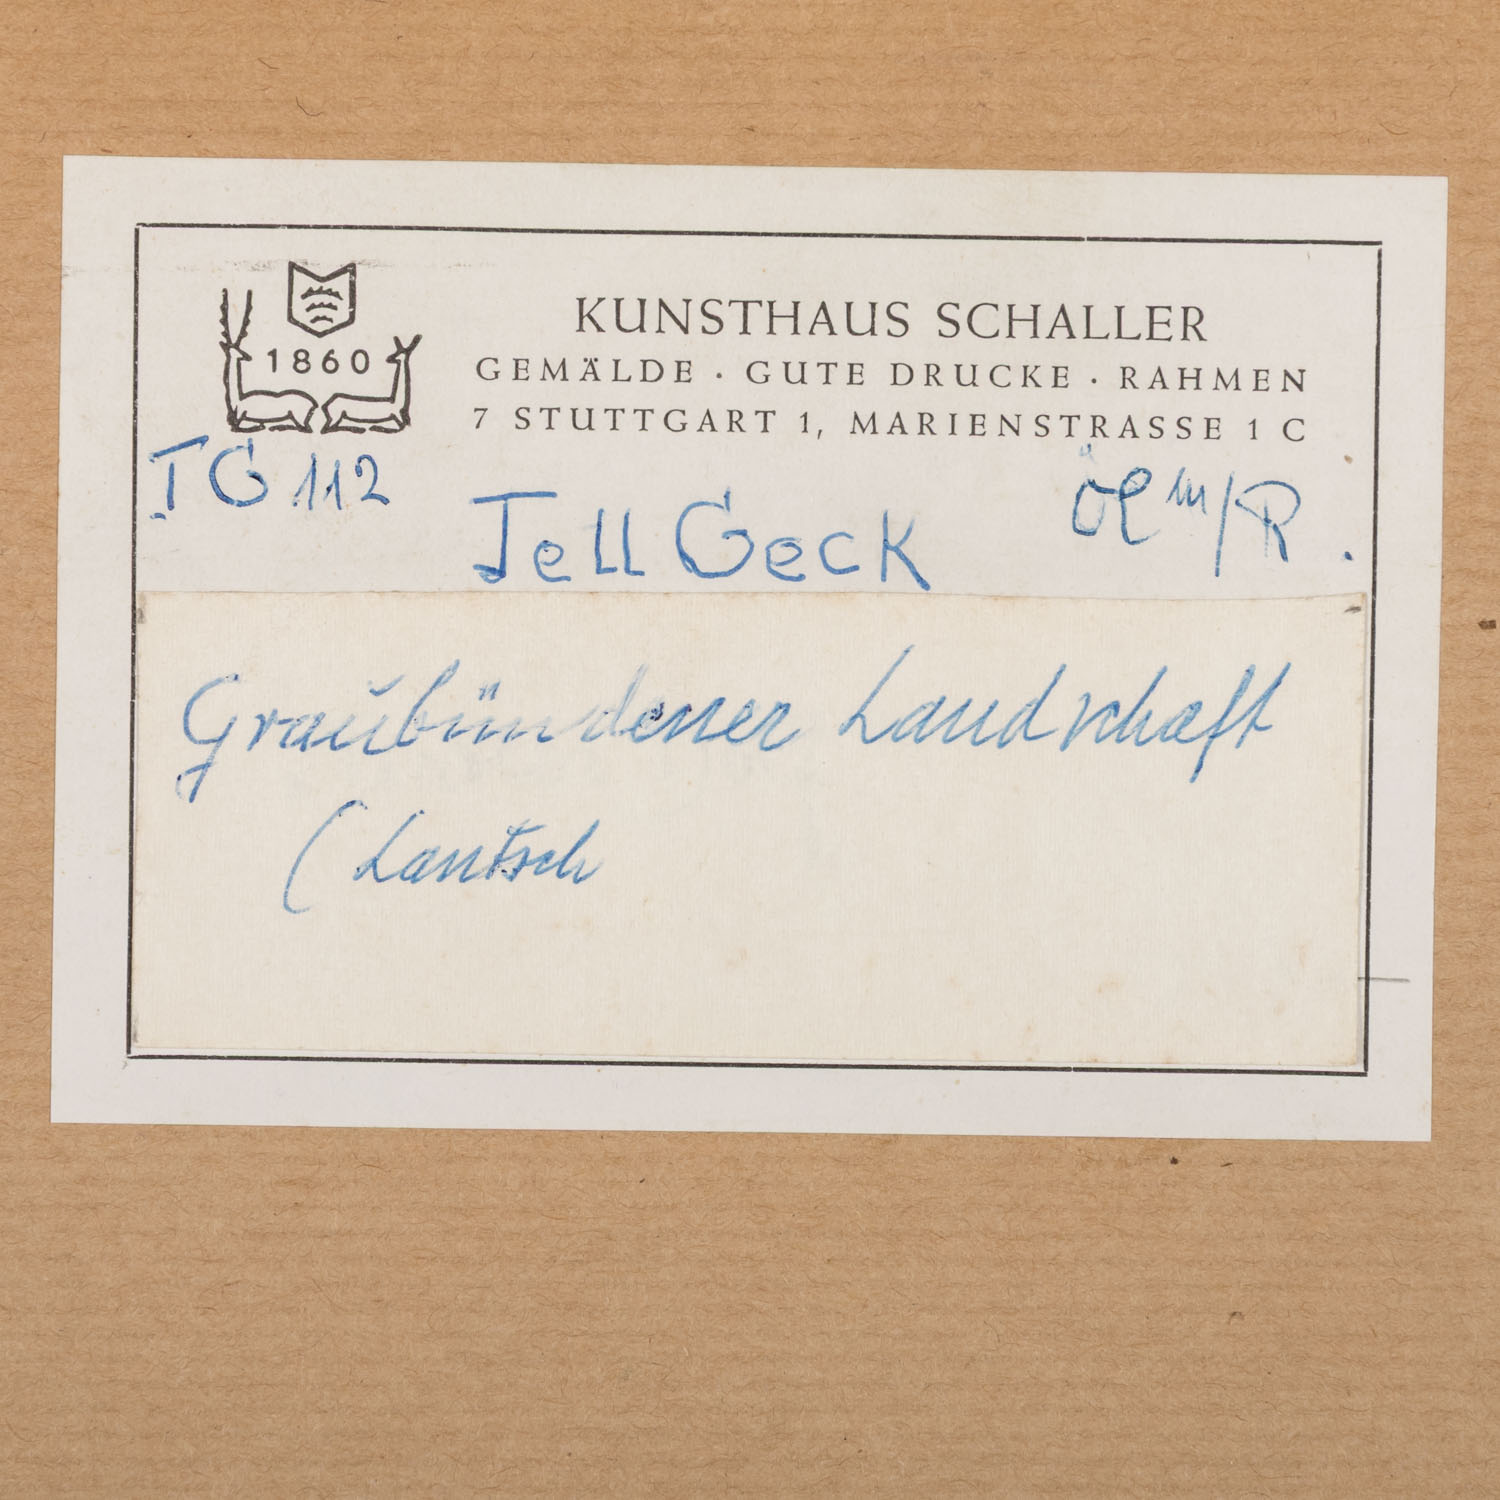 1860
KUNSTHAUS SCHALLER
GEMÄLDE · GUTE DRUCKE · RAHMEN
7 STUTTGART 1, MARIENSTRASSE 1 C
TG 112
Tell Geck
Öl m/R.
Graubündener Landschaft
(Lantsch